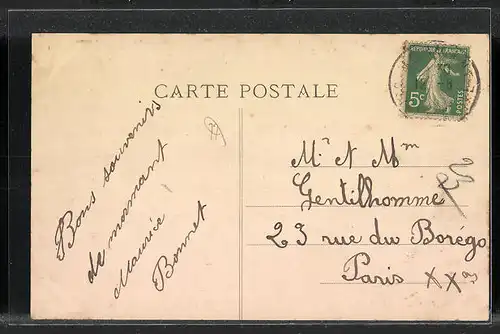 CARTE POSTALE
REPUBLIQUE FRANCAISE
5c
POSTES
Bons souvenirs
de mormant
Maurice
Bonnet
Mr et Mme
Gentilhomme
23 rue du Borégo
Paris XXe